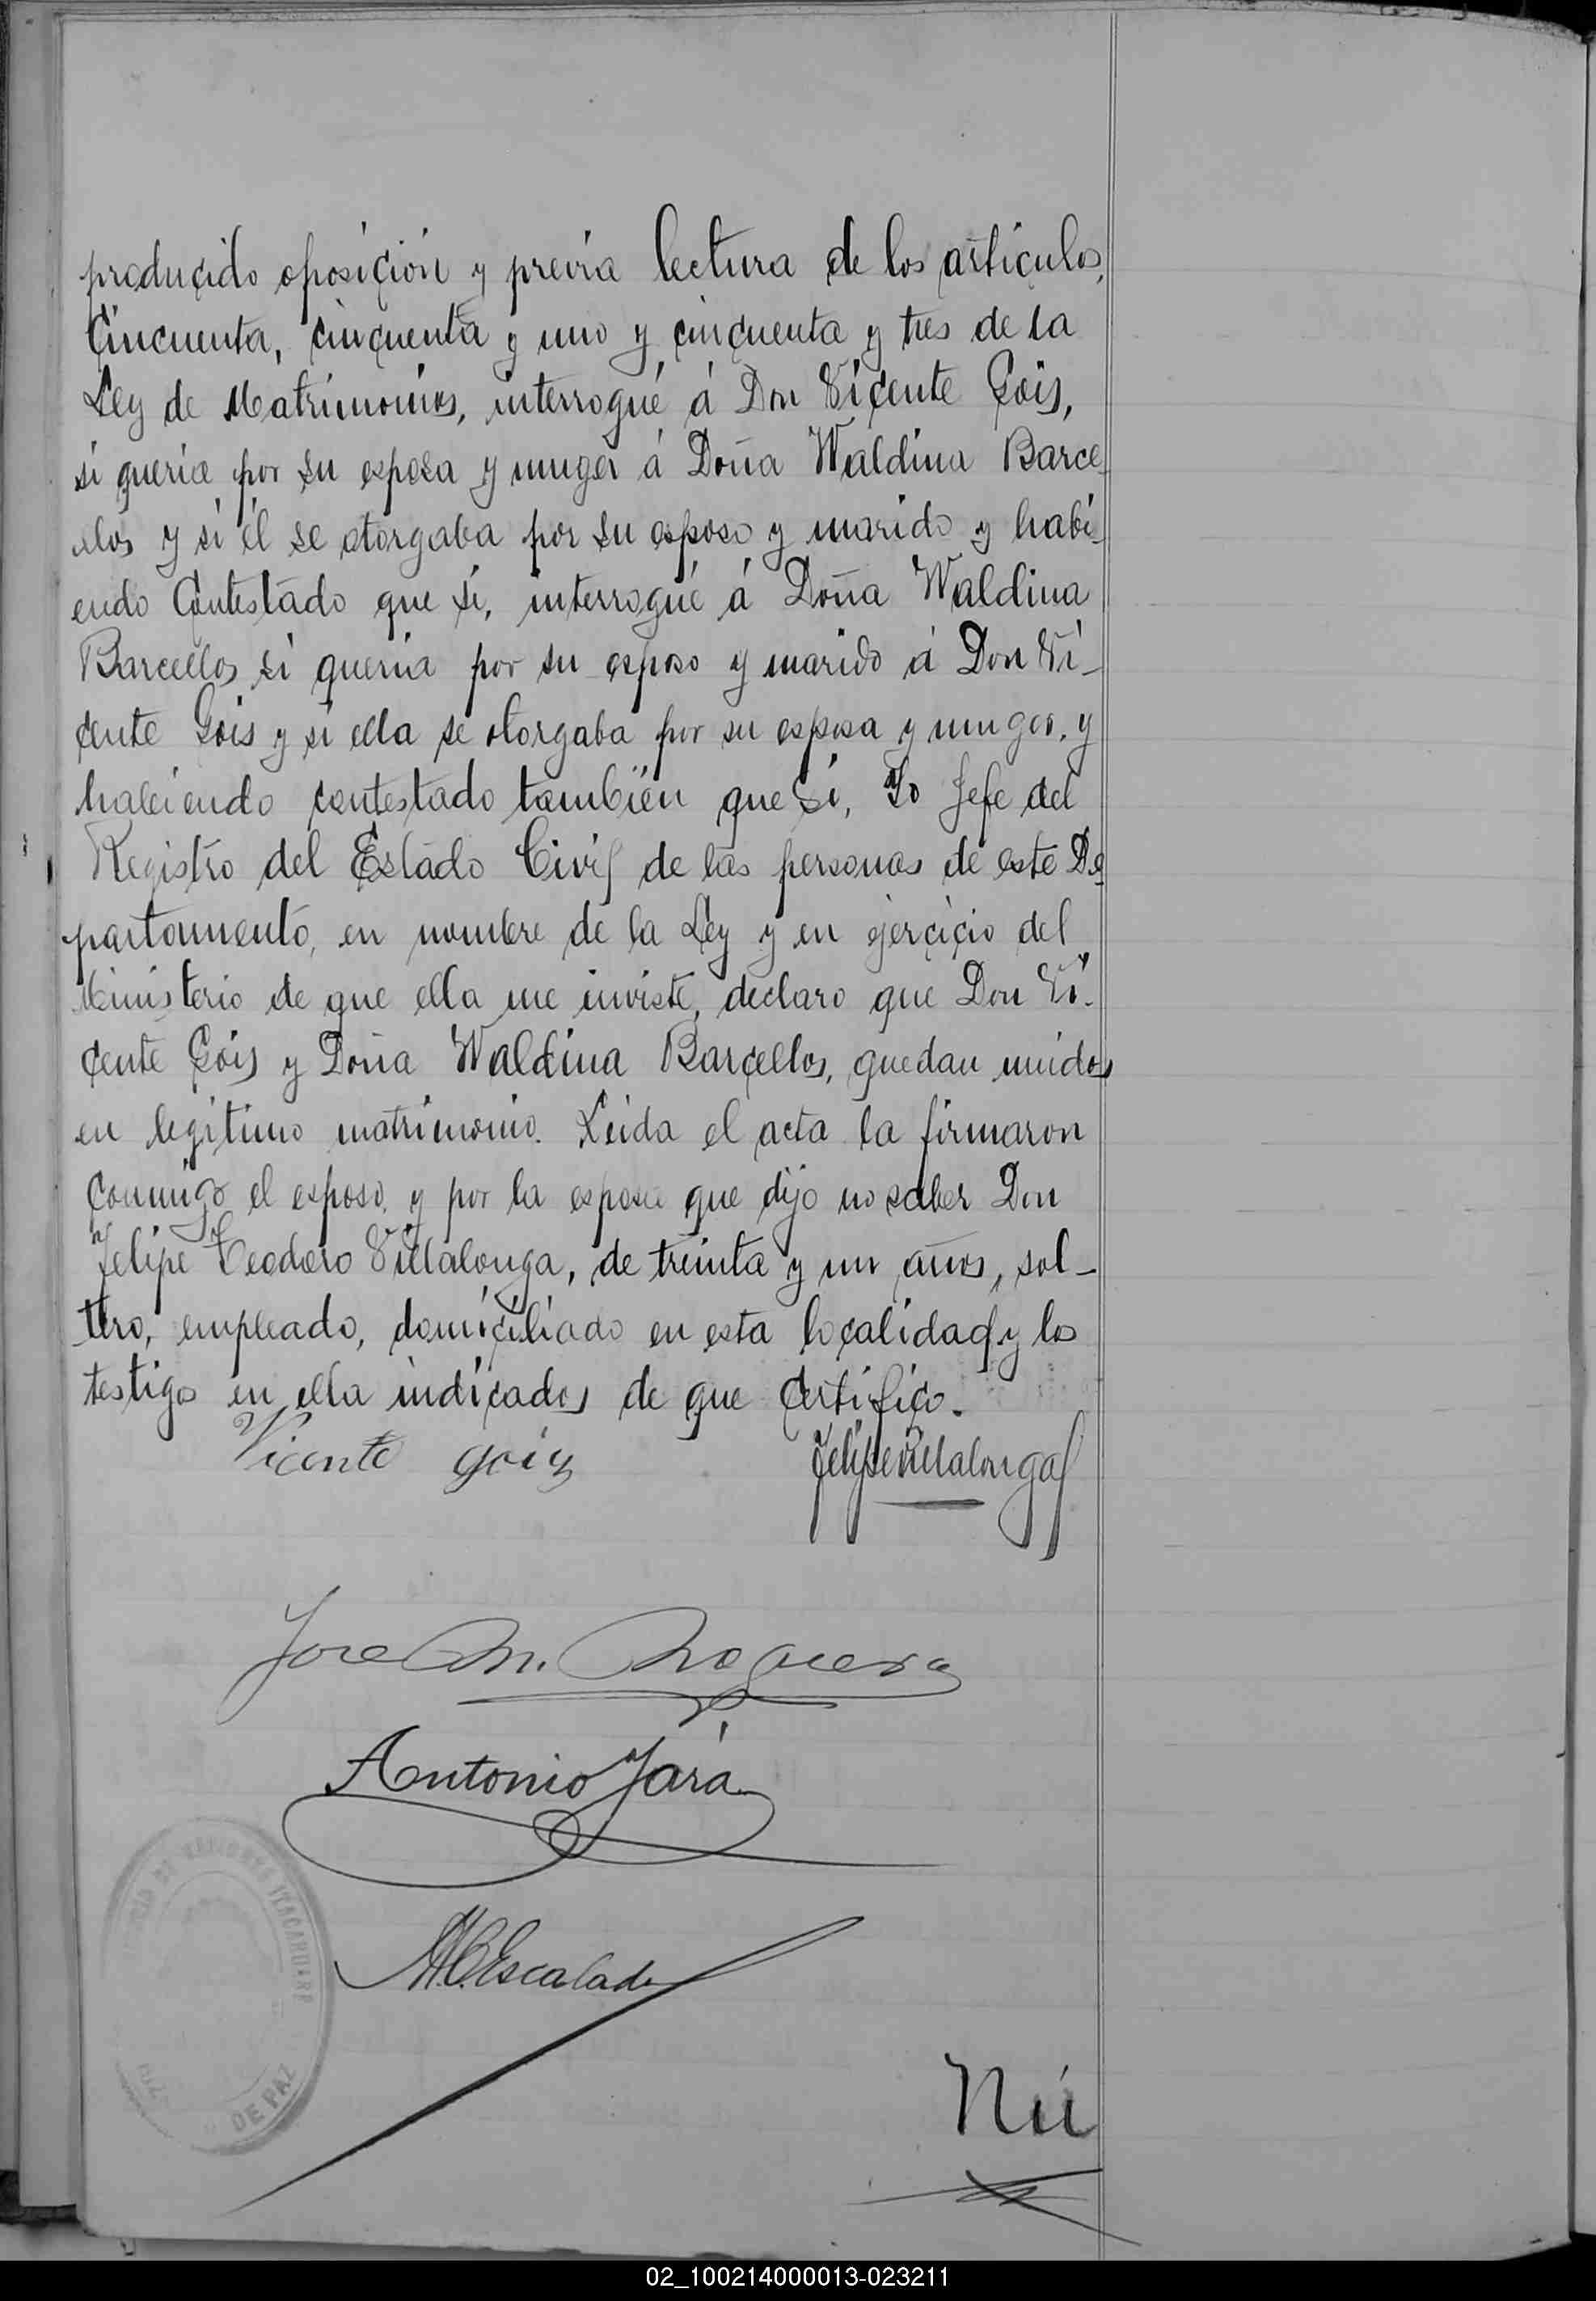 producido oposición y previa lectura de los artículos,
Cincuenta, cincuenta y uno y cincuenta y tres de la
Ley de Matrimonios, interrogué á Don Vicente Gois,
si queria por su esposa y muger á Doña Waldina Barce
llos y si él se otorgaba por su esposo y marido y habi
endo Contestado que si, interrogué á Doña Waldina
Barcellos si queria por su esposo y marido á Don Vi-
cente Gois y si ella se otorgaba por su esposa y muger, y
habiendo contestado también que si, Yo Jefe del
Registro del Estado Civil de las personas de este De
partamento, en nombre de la Ley y en ejercicio del
Ministerio de que ella me inviste, declaro que Don Vi-
cente Gois y Doña Waldina Barcellos, quedan unidos
en legítimo matrimonio. Leida el acta la firmaron
conmigo el esposo, y por la esposa que dijo no saber Don
Felipe Teodoro Villalonga, de treinta y un años, sol-
tero, empleado, domiciliado en esta localidad y los
testigos en ella indicados de que certifico.
Vicente gois Felipe Villalonga
Jose M. Noguera
Antonio Jara
M.C. Escalada
DE PAZ
Nú
02_100214000013-023211